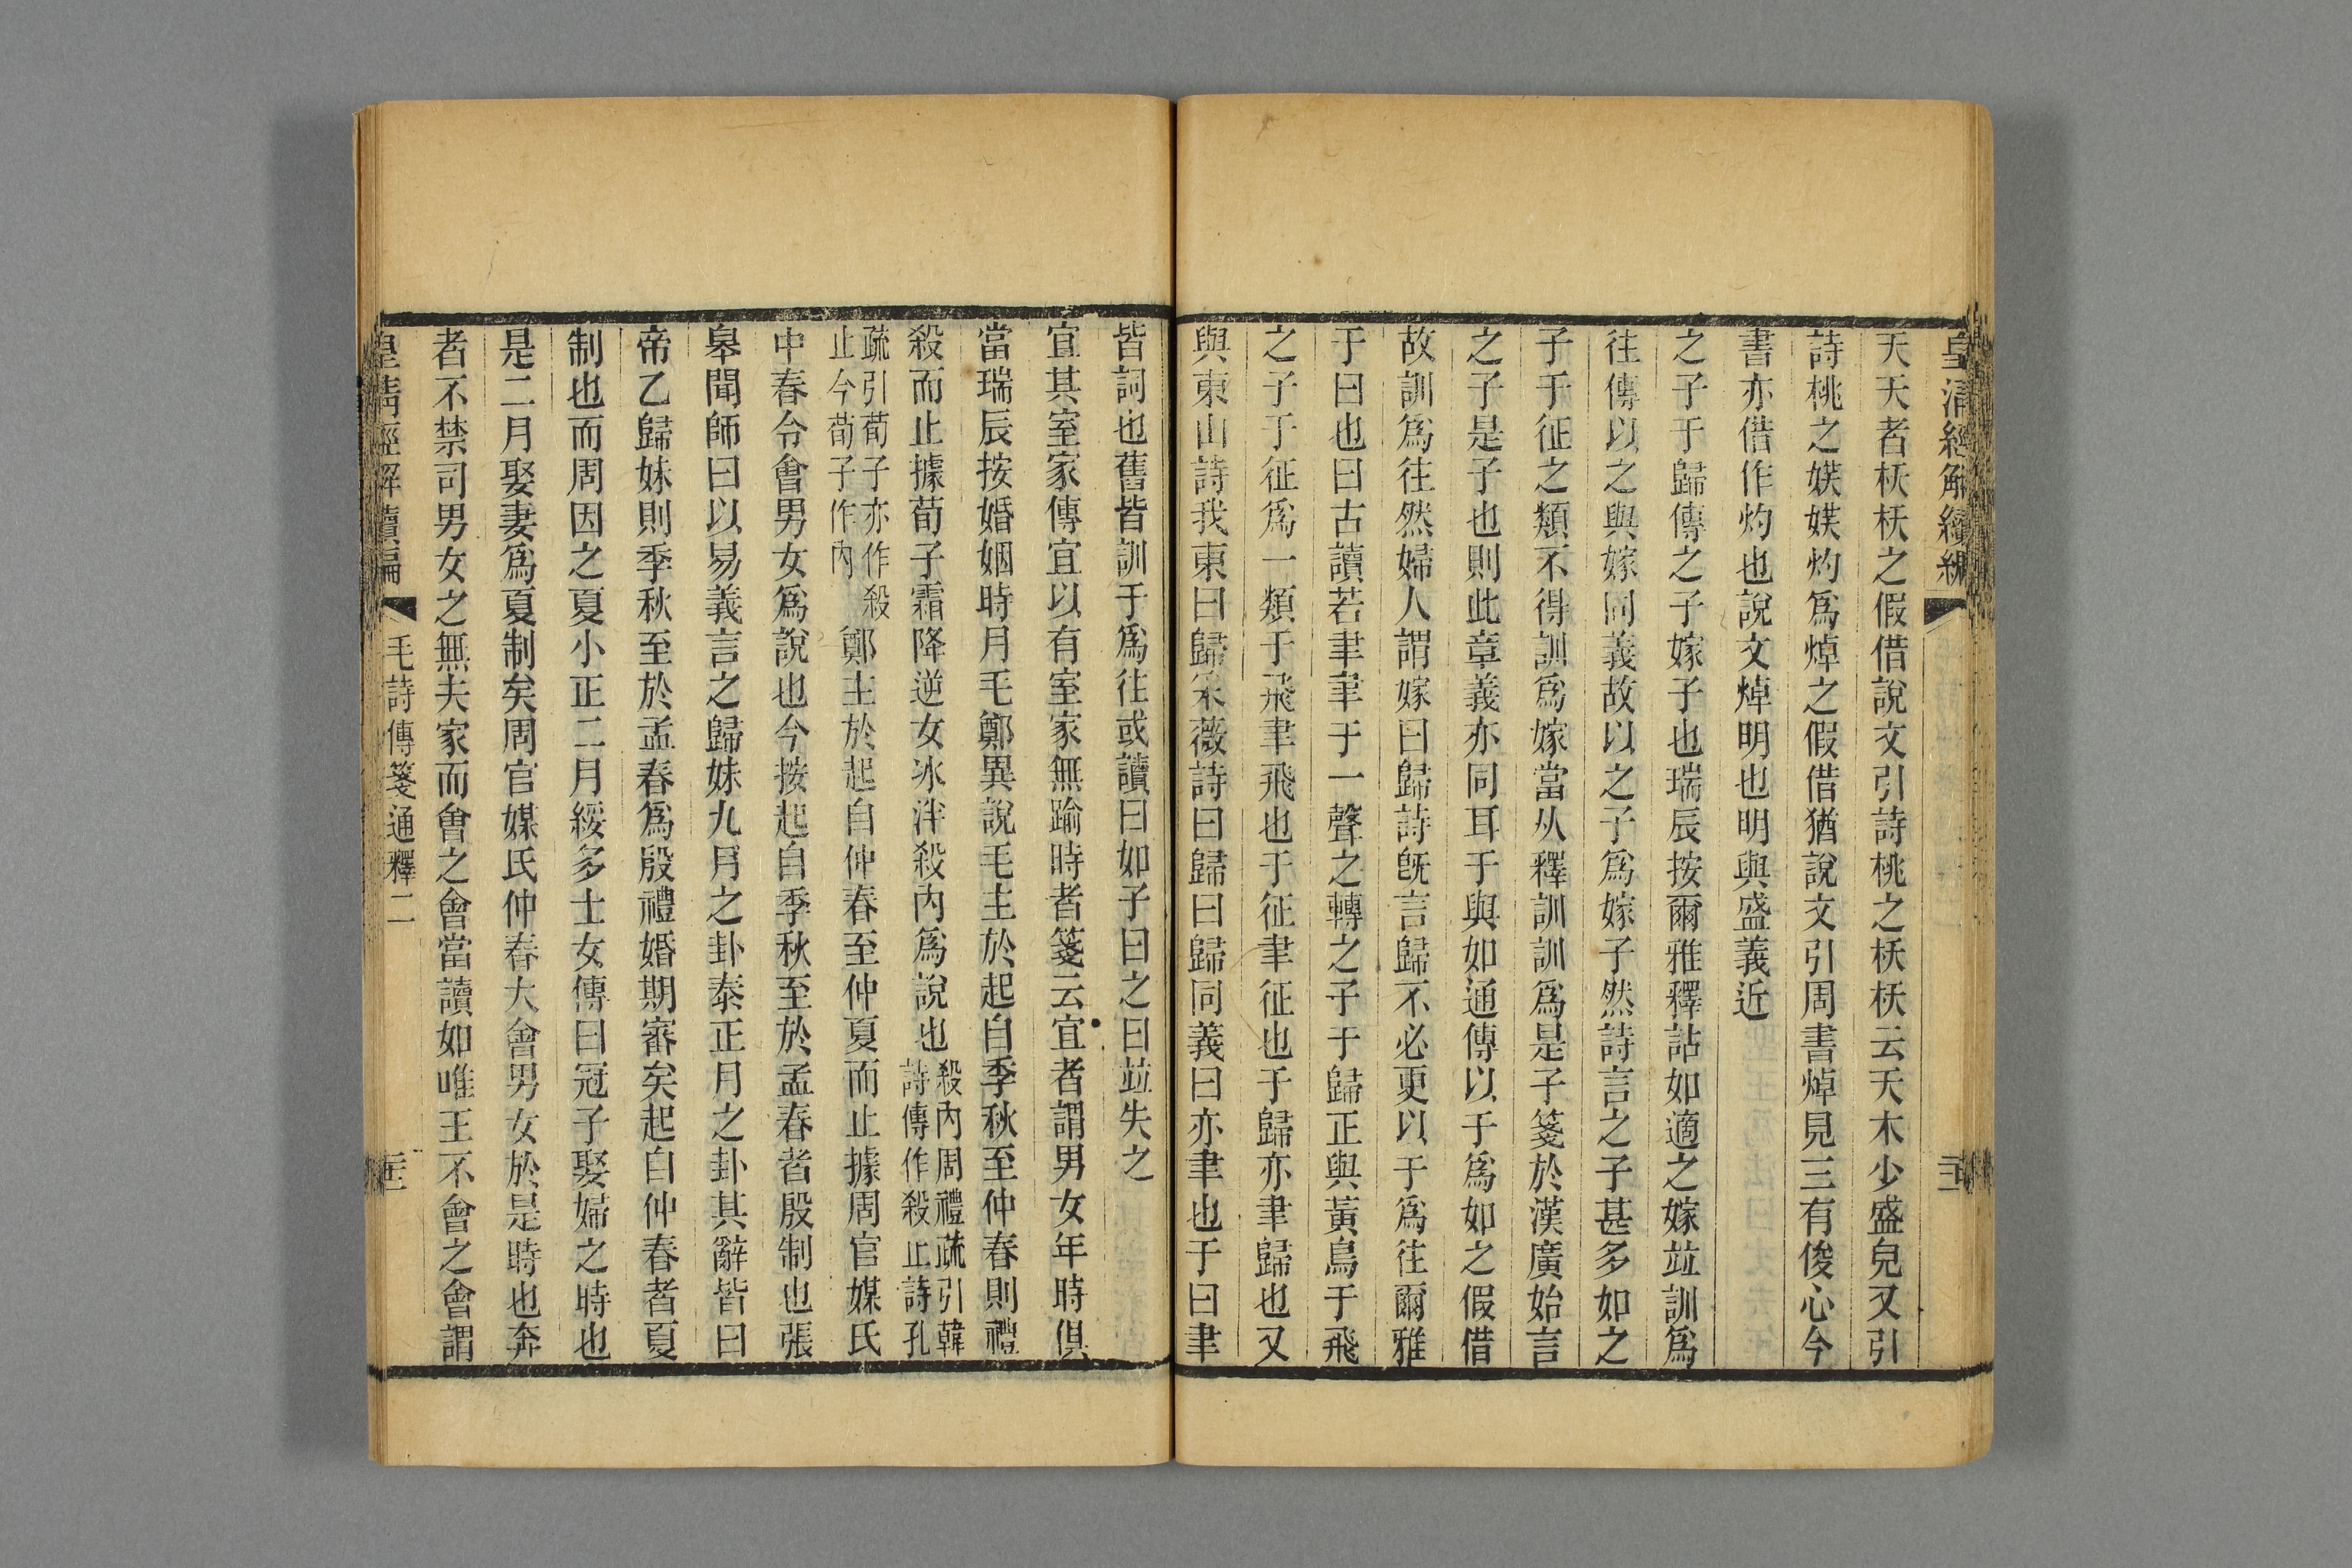 皇清經解續編
夭夭者枖枖之假借說文引詩桃之枖枖云夭木少盛皃又引
詩桃之媄媄灼爲焯之假借猶說文引周書焯見三有俊心今
書亦借作灼也說文焯明也明與盛義近
之子于歸傳之子嫁子也瑞辰按爾雅釋詁如適之嫁竝訓爲
往傳以之與嫁同義故以之子爲嫁子然詩言之子甚多如之
子于征之類不得訓爲嫁當从釋訓訓爲是子箋於漢廣始言
之子是子也則此章義亦同耳于與如通傳以于爲如之假借
故訓爲往然婦人謂嫁曰歸詩旣言歸不必更以于爲往爾雅
于曰也曰古讀若聿聿于一聲之轉之子于歸正與黃鳥于飛
之子于征爲一類于飛聿飛也于征聿征也于歸亦聿歸也又
與東山詩我東曰歸采薇詩曰歸曰歸同義曰亦聿也于曰聿
皆詞也舊皆訓于爲往或讀曰如子曰之曰竝失之
宜其室家傳宜以有室家無踰時者箋云宜者謂男女年時俱
當瑞辰按婚姻時月毛鄭異說毛主於起自季秋至仲春則禮
殺而止據荀子霜降逆女冰泮殺內爲說也殺內周禮疏引韓
詩傳作殺止詩孔
疏引荀子亦作殺
止今荀子作內鄭主於起自仲春至仲夏而止據周官媒氏
中春令會男女爲說也今按起自季秋至於孟春者殷制也張
皋聞師曰以易義言之歸妹九月之卦泰正月之卦其辭皆曰
帝乙歸妹則季秋至於孟春爲殷禮婚期審矣起自仲春者夏
制也而周因之夏小正二月綏多士女傳曰冠子娶婦之時也
是二月娶妻爲夏制矣周官媒氏仲春大會男女於是時也奔
者不禁司男女之無夫家而會之會當讀如唯王不會之會謂
皇清經解續編
毛詩傳箋通釋二